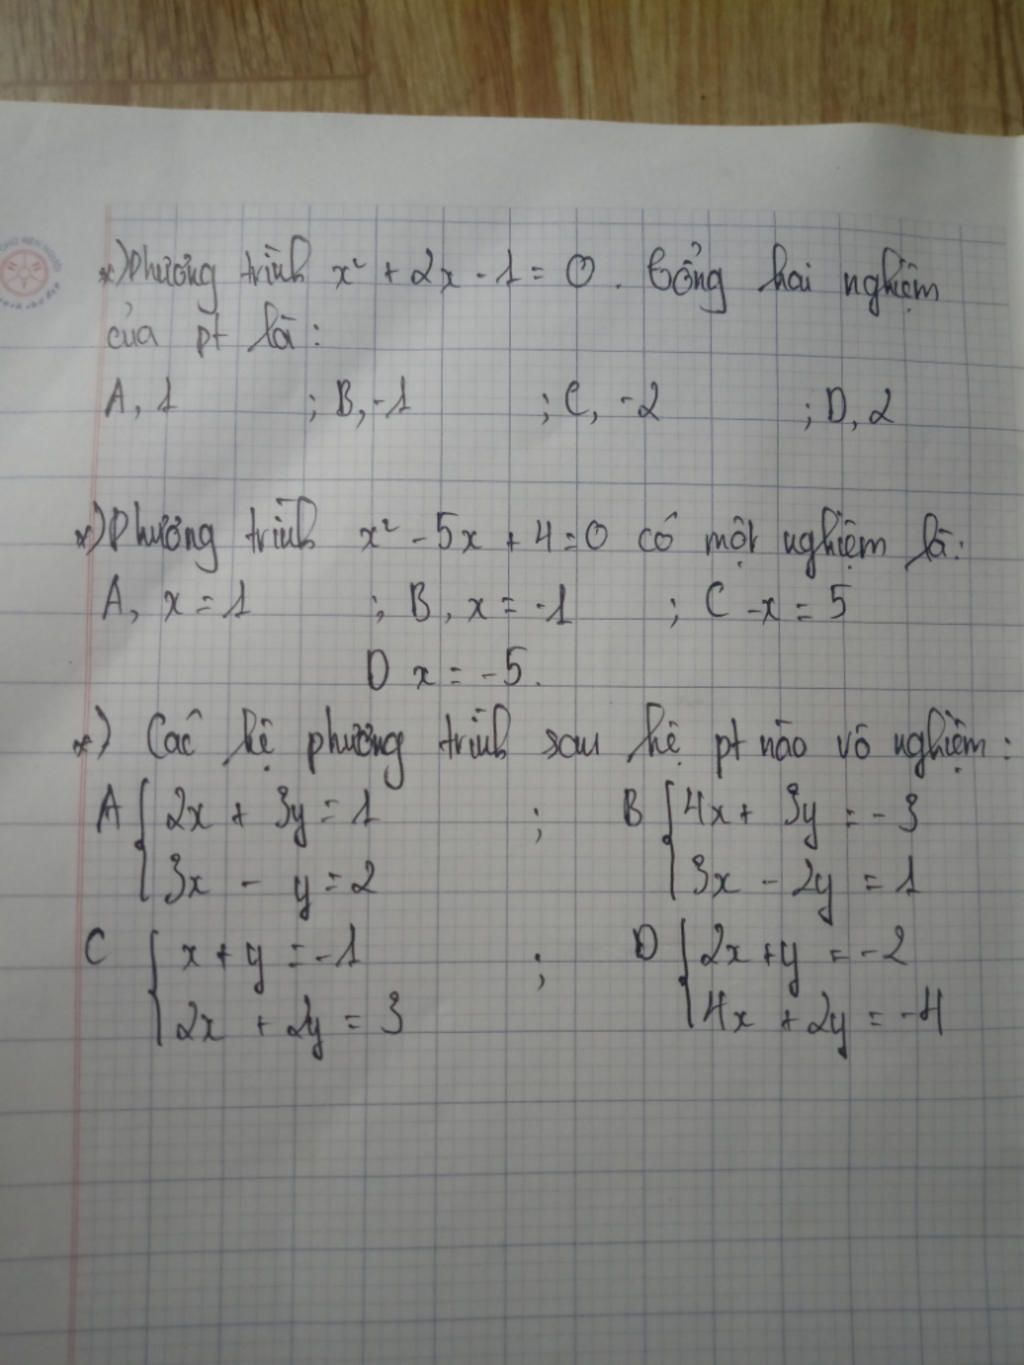 *) Phương trình x² + 2x - 1 = 0. Tổng hai nghiệm
của pt là:
A, 1 ; B, -1 ; C, -2 ; D, 2
*) Phương trình x² - 5x + 4 = 0 có một nghiệm là:
A, x = 1 ; B, x = -1 ; C -x = 5
D x = -5.
*) Các hệ phương trình sau hệ pt nào vô nghiệm:
A { 2x + 3y = 1 ; B { 4x + 3y = -3
3x - y = 2 3x - 2y = 1
C { x + y = -1 ; D { 2x + y = -2
2x + 2y = 3 4x + 2y = -4